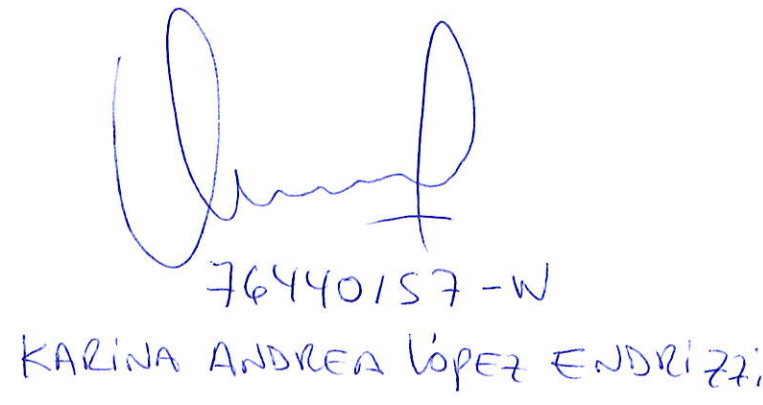 76440157-W
KARINA ANDREA LÓPEZ ENDRIZZI